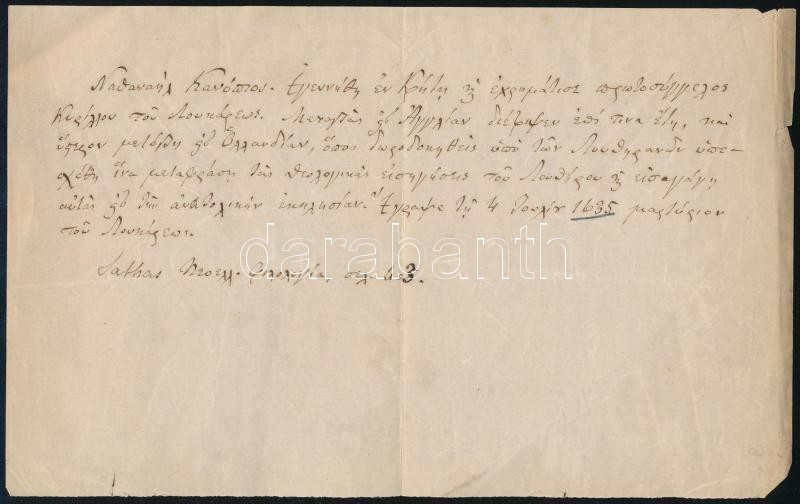 Ναθαναὴλ Κανόπιος. Ἐγεννήθη ἐν Κρήτῃ ϗ ἐχρημάτισε πρωτοσύγγελος
Κυρίλλου τοῦ Λουκάρεως. Μεταβὰς εἰς Ἀγγλίαν διέτριψεν ἐπί τινα ἔτη, καὶ
ὕστερον μετέβη εἰς Ὁλλανδίαν, ὅπου δωροδοκηθεὶς ὑπὸ τῶν Λουθηρανῶν ὑπε-
σχέθη ἵνα μεταφράσῃ τὰς θεολογικὰς εἰσηγήσεις τοῦ Λουθήρου ϗ εἰσαγάγῃ
αὐτὰς εἰς τὴν ἀνατολικὴν ἐκκλησίαν. Ἔγραψε τῇ 4 Ἰουλίου 1635 μαρτύριον
τοῦ Λουκάρεως.
Sathas Νεοελλ. φιλολογία, σελ.
darabanth